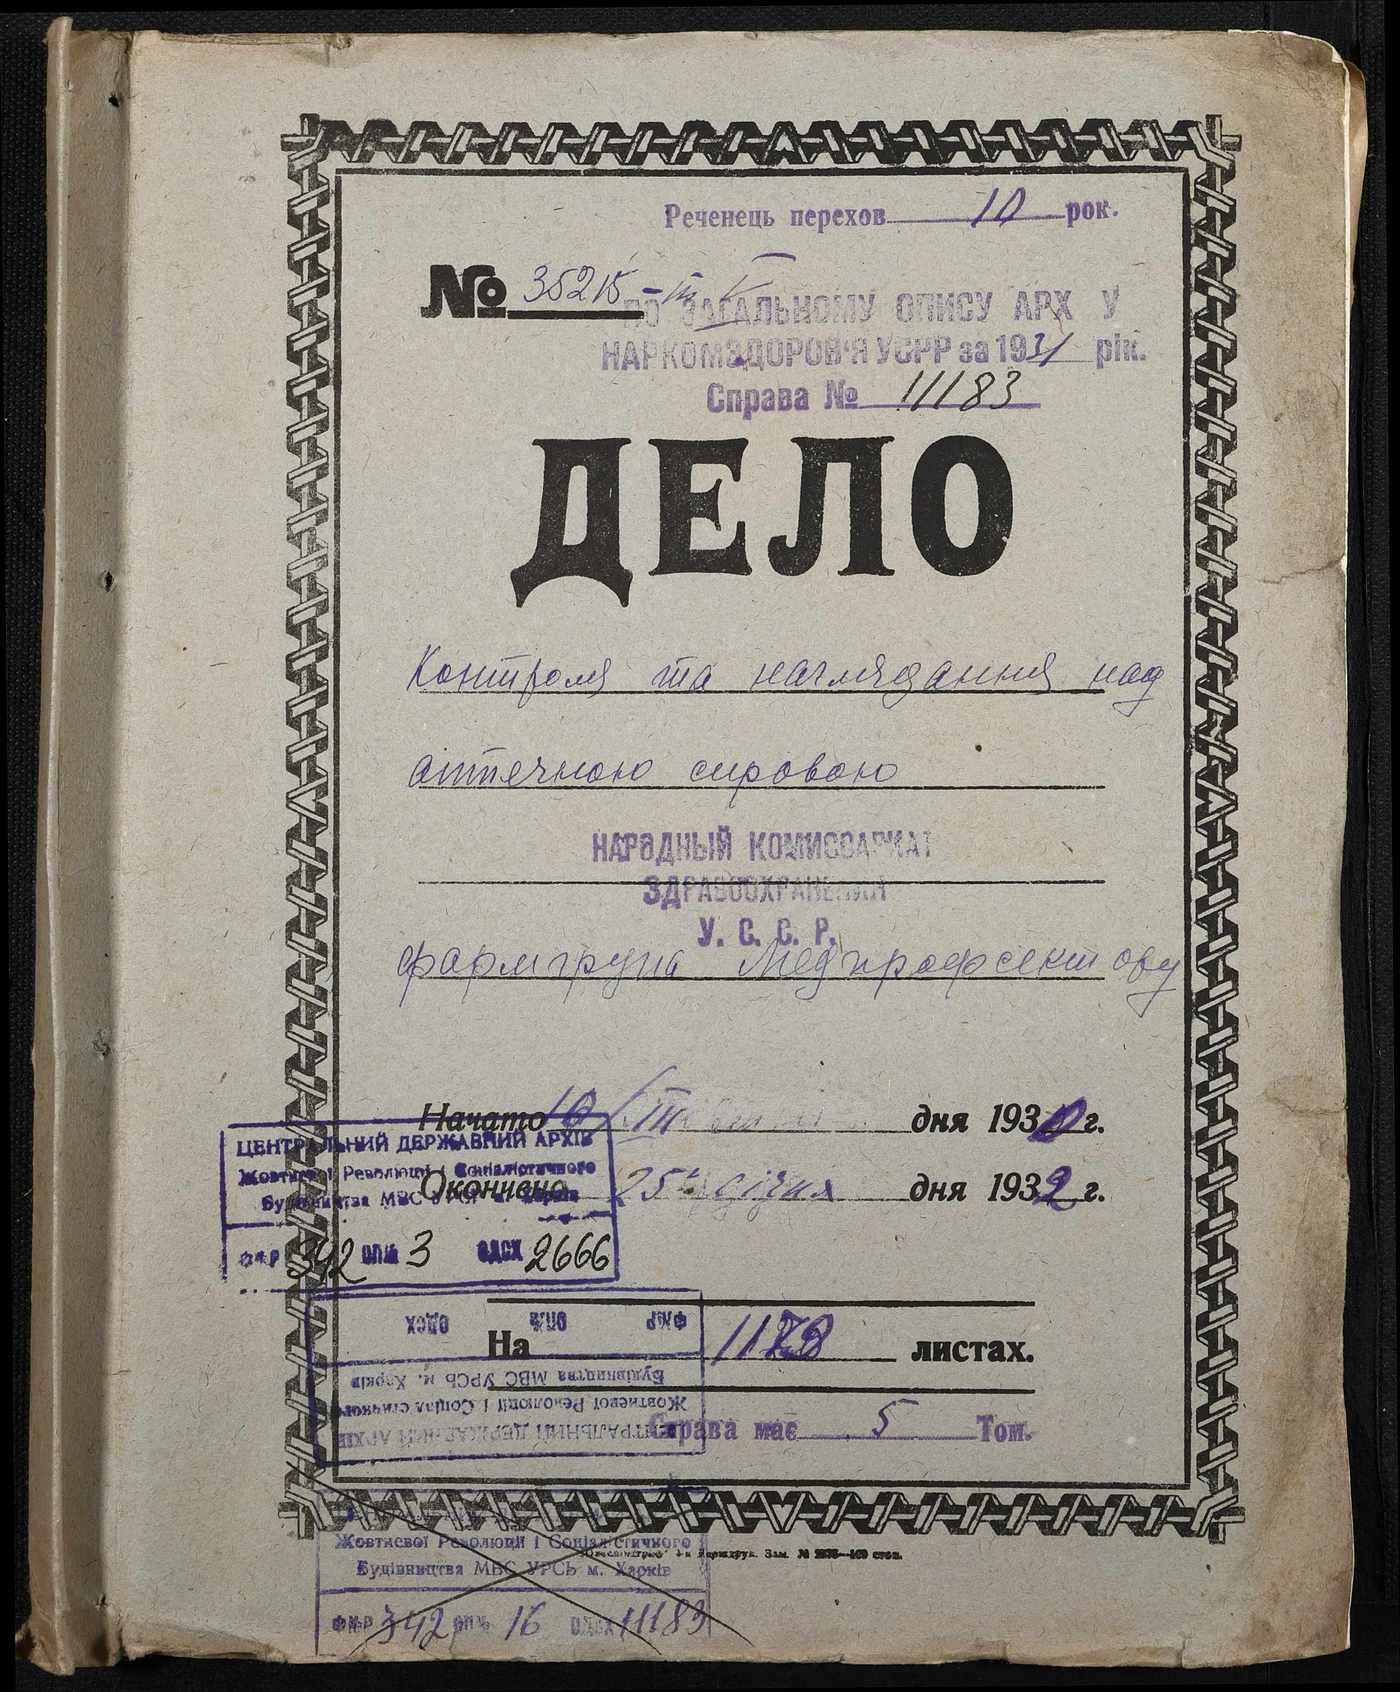 Реченець перехов 10 рок.
№ 35215
ПО ЗАГАЛЬНОМУ ОПИСУ АРХ У
НАРКОМЗДОРОВ'Я УСРР за 1931 рік.
Справа № 11183
ДЕЛО
Контроля та наглядання над
аптечною сировою
НАРОДНЫЙ КОМИССАРИАТ
ЗДРАВООХРАНЕНИЯ
У. С. С. Р.
фармгрупа Медпрофсектову
Начато 10/III дня 1930 г.
ЦЕНТРАЛЬНИЙ ДЕРЖАВНИЙ АРХІВ
Жовтневої Революції і Соціалістичного
Будівництва МВС УРСР м. Харків
Окончено 25 січня дня 1932 г.
ФНР 342 ОП№ 3 ОДСХ 2666
ФНР ОП№ ОДСХ
На 1178 листах.
Будівництва МВС УРСЬ м. Харків
Жовтневої Революції і Соціалістичного
ЦЕНТРАЛЬНИЙ ДЕРЖАВНИЙ АРХІВ
Справа має 5 Том.
Жовтневої Революції і Соціалістичного
Будівництва МВС УРСЬ м. Харків
ФНР 342 ОП№ 16 ОДСХ 11183